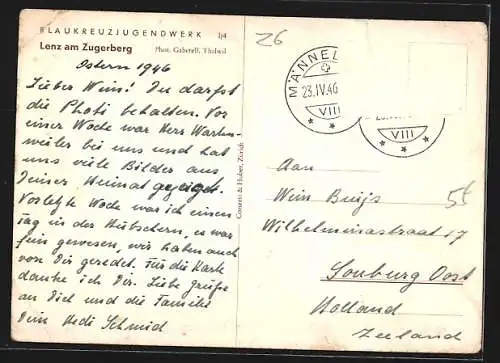 BLAUKREUZJUGENDWERK 1/4
Lenz am Zugerberg Phot. Gaberell, Thalwil
Ostern 1946
Lieber Wim! Du darfst
die Photi behalten. Vor
einer Woche war Herr
weiler bei uns und hat
uns viele Bilder aus
Deiner Heimat gezeigt.
Vorletzte Woche war ich einen
Tag in der, es war
fein gewesen, wir haben auch
von Dir geredet. Für die Karte
danke ich Dir. Liebe Grüsse
an Dich und die Familie
Dein Hedi Schmid
Conzett & Huber, Zürich
26
MÄNNED
23.IV.46
VIII
VIII
Aan
Wim Buijs
Wilhelminastraat 17
Souburg Oost
Holland
Zeeland
5t